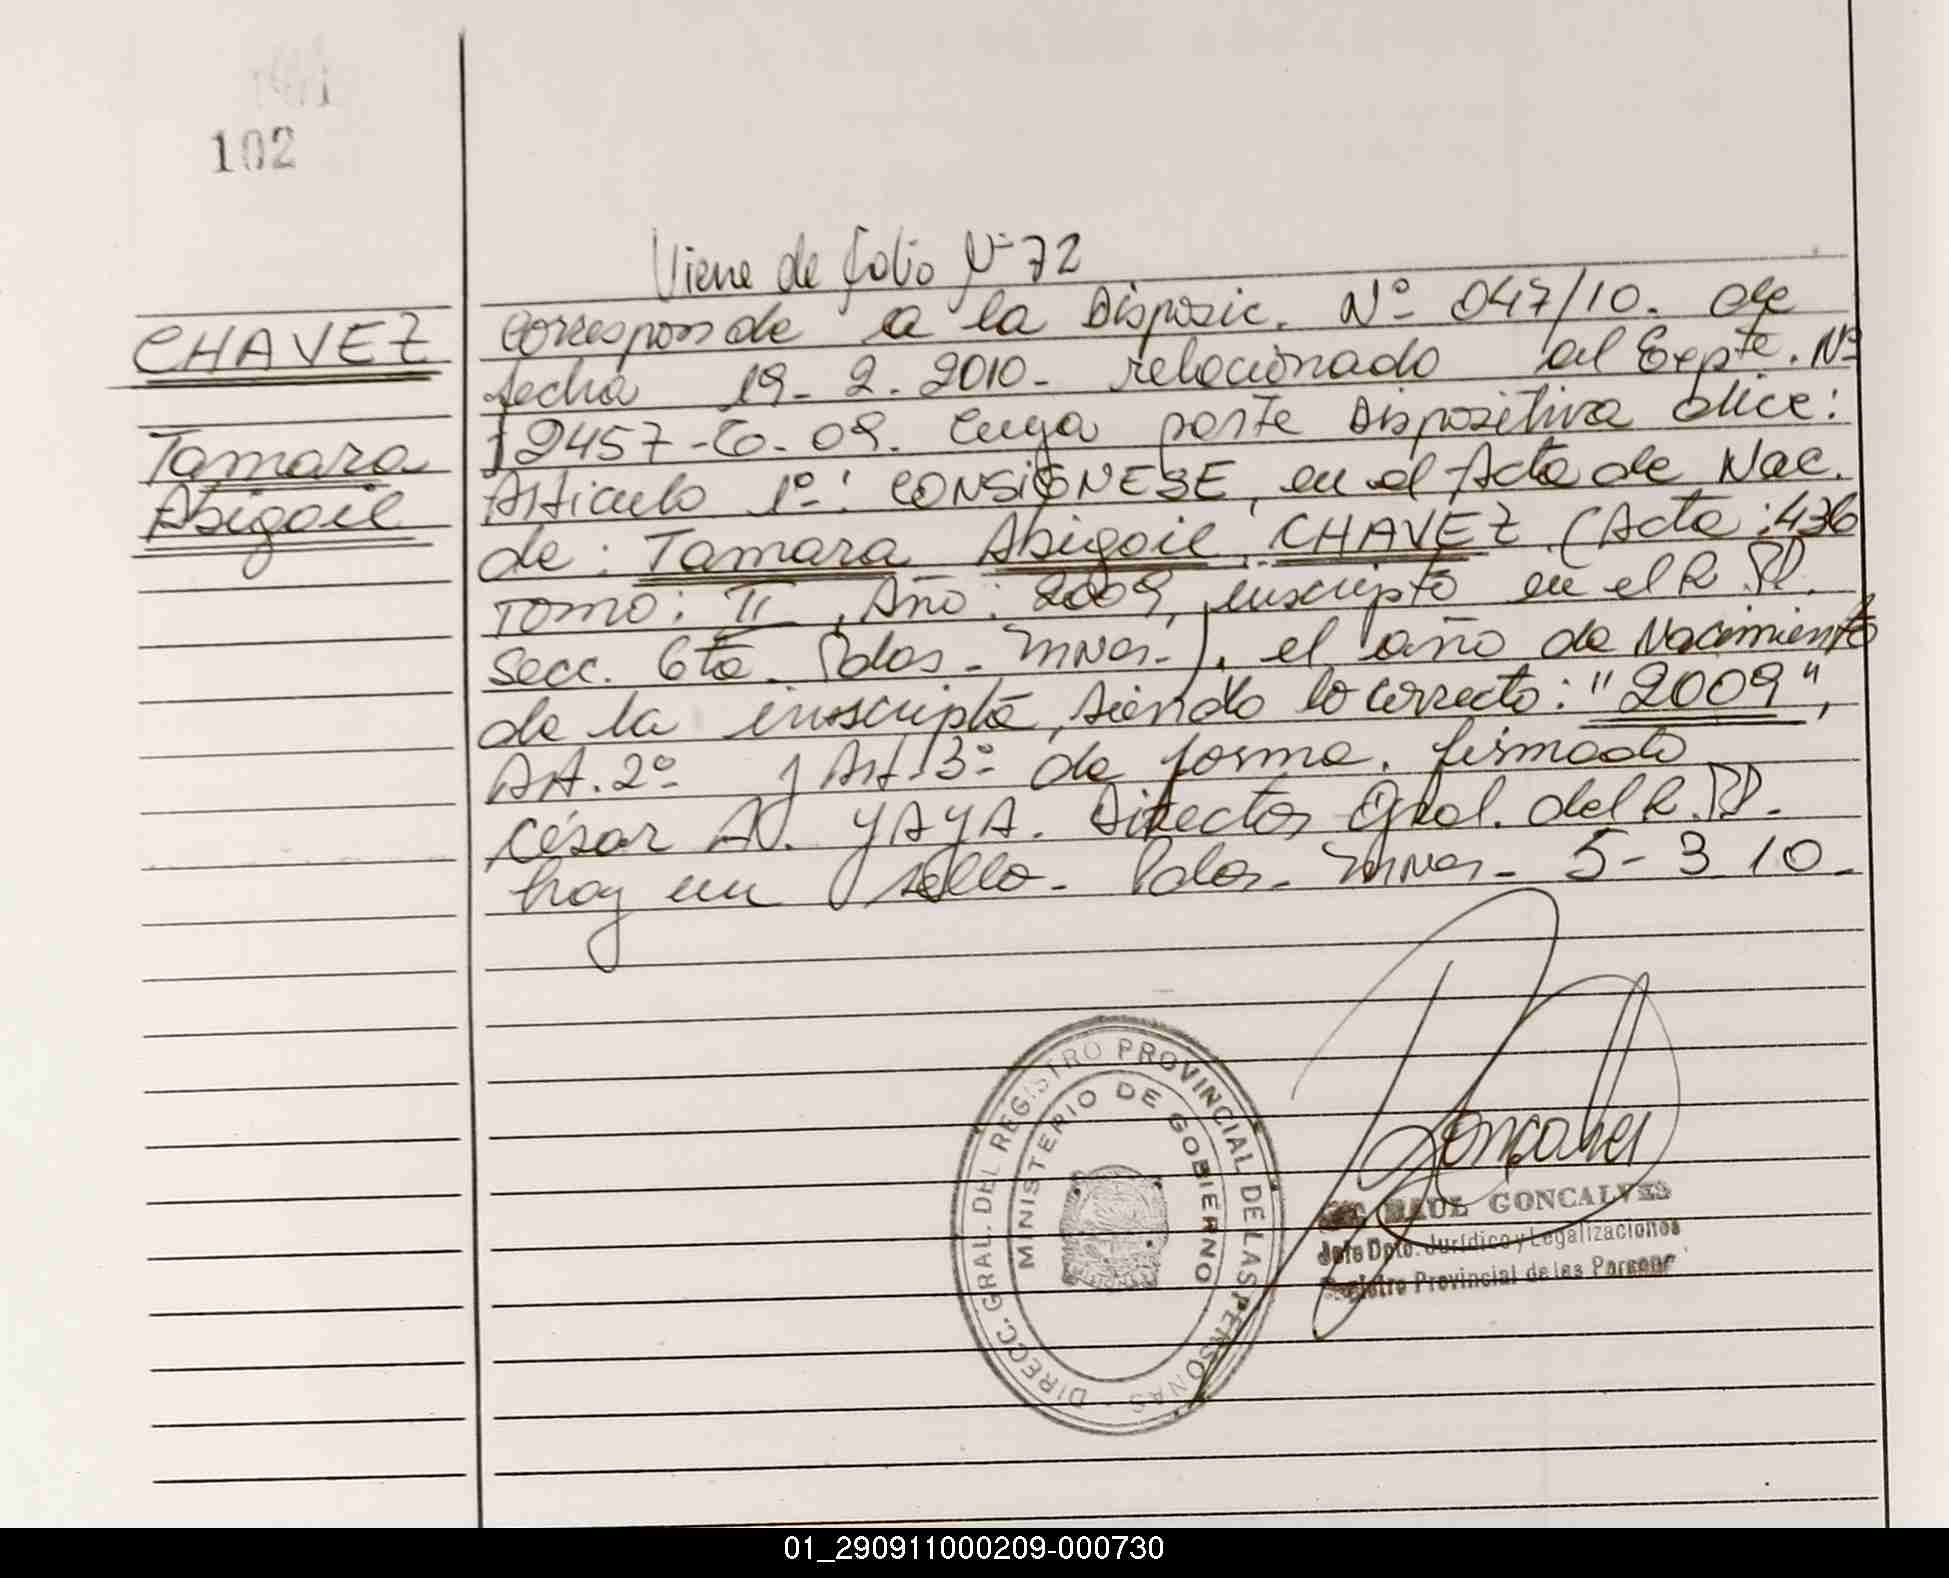 102
Viene de folio Nº 72
CHAVEZ
Tamara
Abigail
Corresponde a la Disposic. Nº 047/10. de
fecha 19-2-2010- relacionado al Expte. Nº
12457-Co-09. Cuya parte Dispositiva dice:
Artículo 1º: CONSIGNESE, en el Acta de Nac.
de: Tamara Abigail CHAVEZ (Acta: 436
Tomo: II, Año: 2009, inscripta en el R.PP.
Secc. 6ta. Pdas- Mnes-). el año de Nacimiento
de la inscripta, siendo lo correcto: "2009",
Art. 2º y Art. 3º de forma. firmado
César A. YAYA. Director Gral. del R.PP.
hay un sello- Pdas- Mnes- 5-3 10-
DIREC. GRAL. DEL REGISTRO PROVINCIAL DE LAS PERSONAS
MINISTERIO DE GOBIERNO
Goncalves
RAUL GONCALVES
Jefe Dpto. Jurídico y Legalizaciones
Registro Provincial de las Personas
01_290911000209-000730